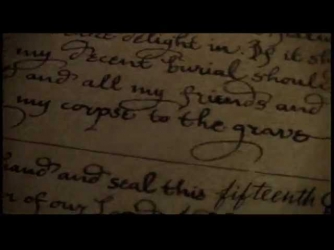 delight in. If it
my decent burial should
and all my friends and
my corps to the grave
hand and seal this fifteenth
of our